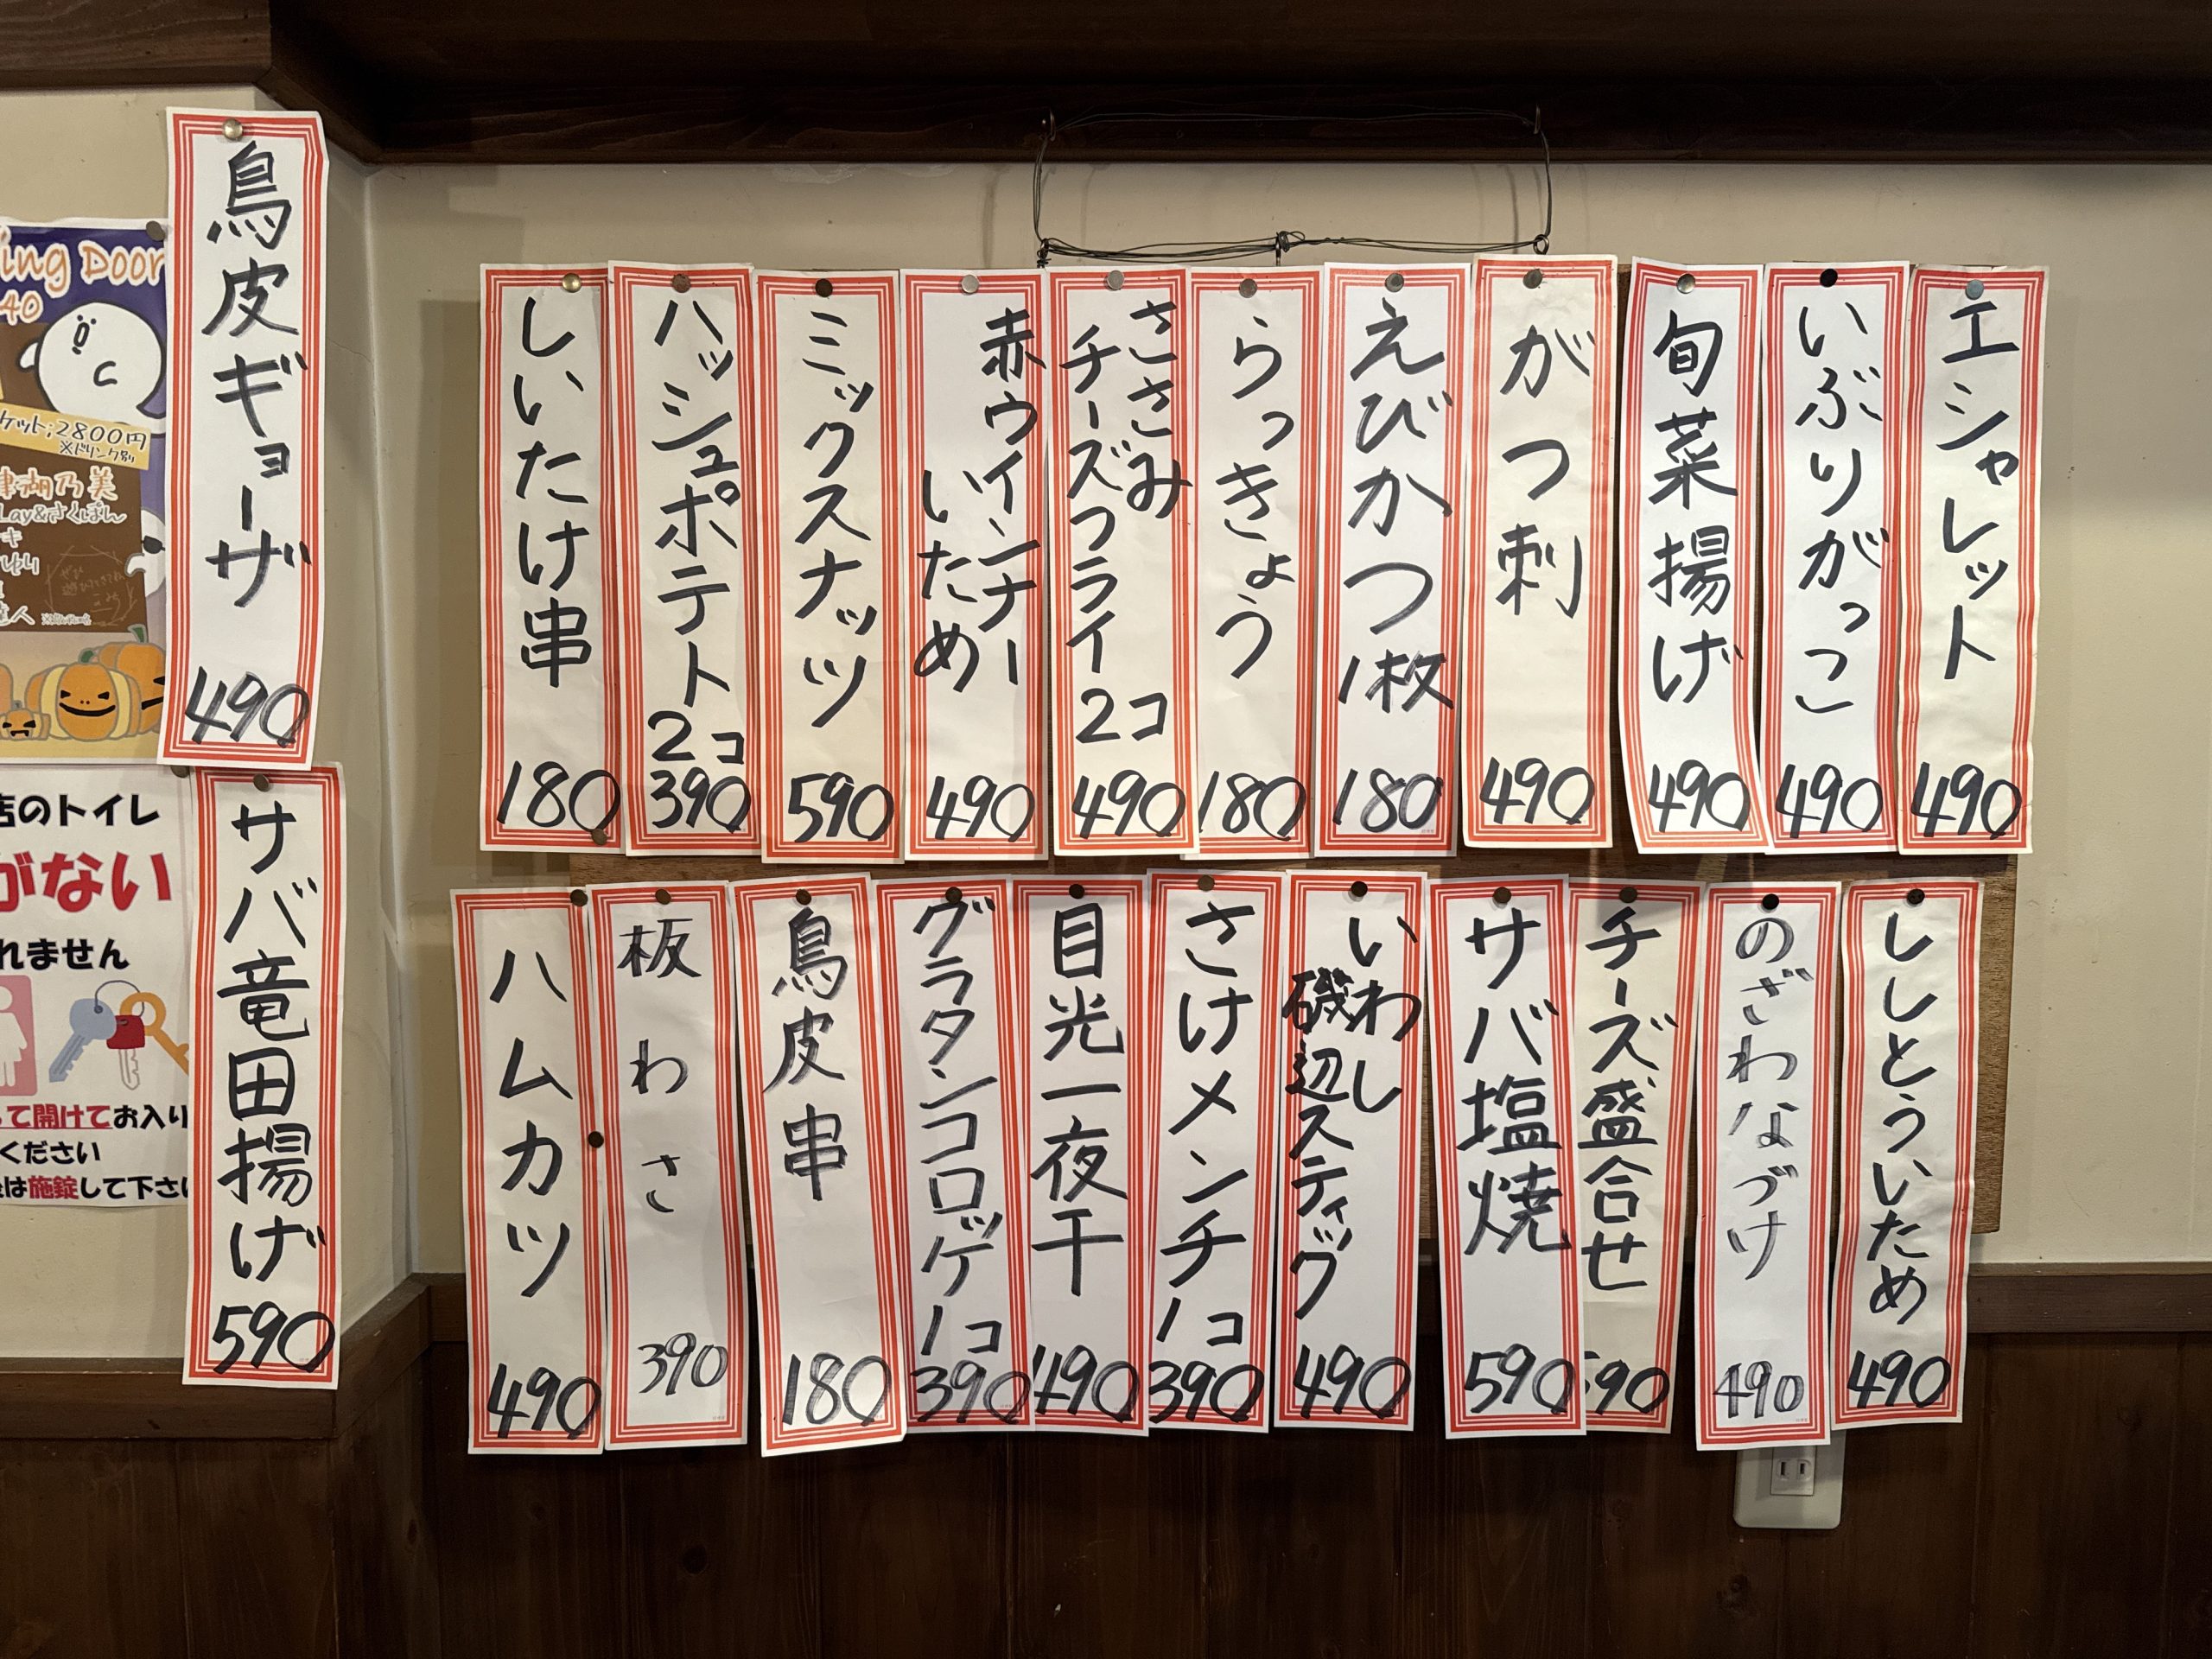 鳥皮ギョーザ
490
サバ竜田揚げ
590
エシャレット
490
いぶりがっこ
490
旬菜揚げ
490
がつ刺
490
えびかつ1枚
180
らっきょう
180
ささみ
チーズフライ2コ
490
赤ウインナー
いため
490
ミックスナッツ
590
ハッシュポテト
2コ
390
しいたけ串
180
ししとういため
490
のざわなづけ
490
チーズ盛合せ
590
サバ塩焼
590
いわし
磯辺スティック
490
さけメンチ1コ
390
目光一夜干
490
グラタンコロッケ1コ
390
鳥皮串
180
板わさ
390
ハムカツ
490
ing Door
40
ケット;2800円
※ドリンク別
津湖乃美
Lay&さくぽん
キ
人
店のトイレ
がない
れません
って開けてお入り
ください
は施錠して下さい